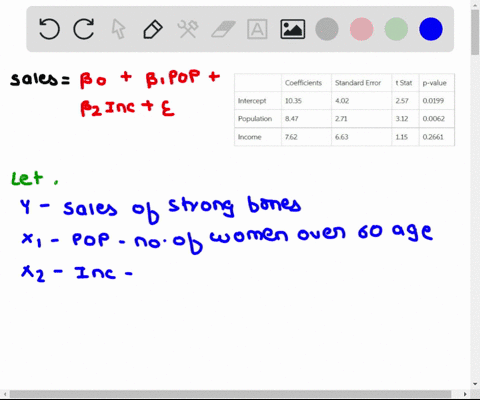 sales = β0 + β1 POP +
β2 Inc + ε
Coefficients Standard Error t Stat p-value
Intercept 10.35 4.02 2.57 0.0199
Population 8.47 2.71 3.12 0.0062
Income 7.62 6.63 1.15 0.2661
Let .
Y - sales of strong bones
X1 - POP - no. of women over 60 age
X2 - Inc -